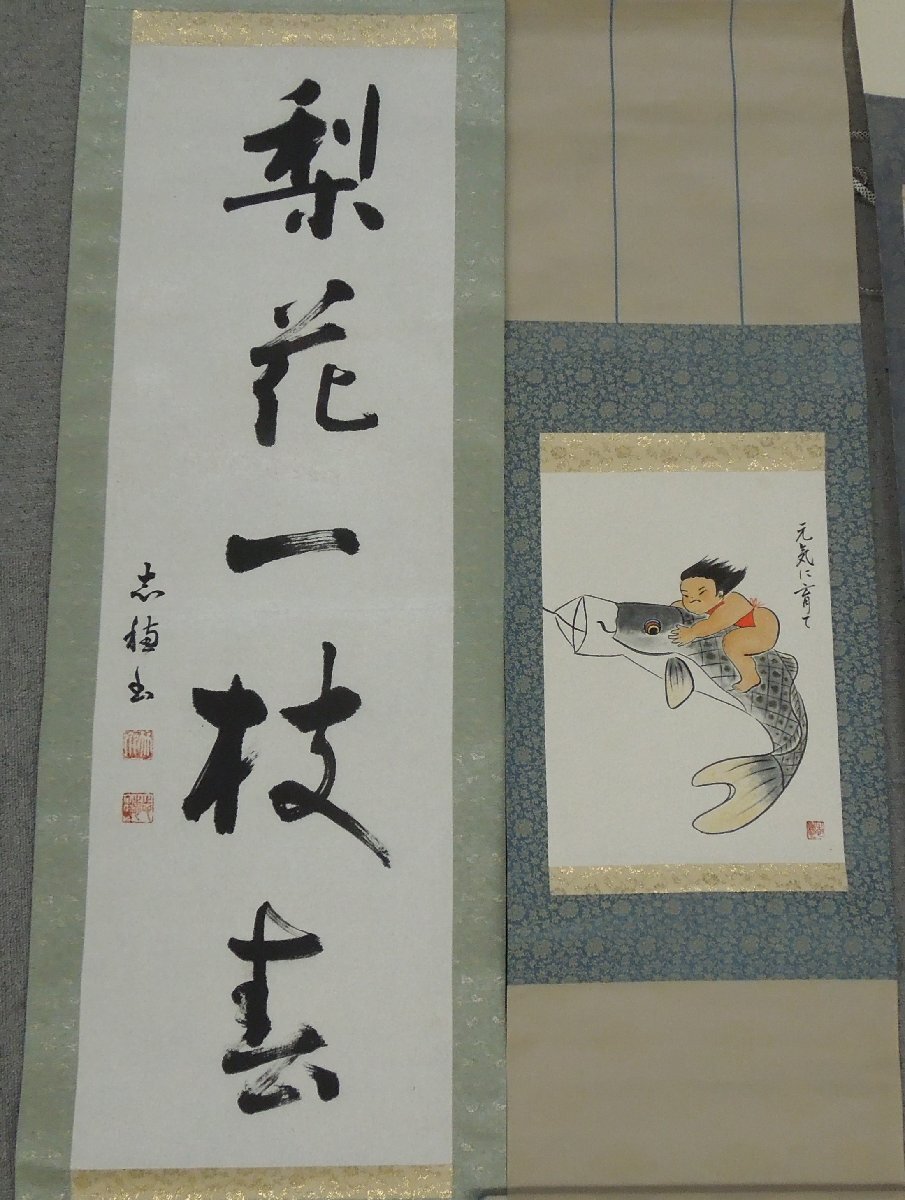 梨花一枝春
志穂書
元気に育て